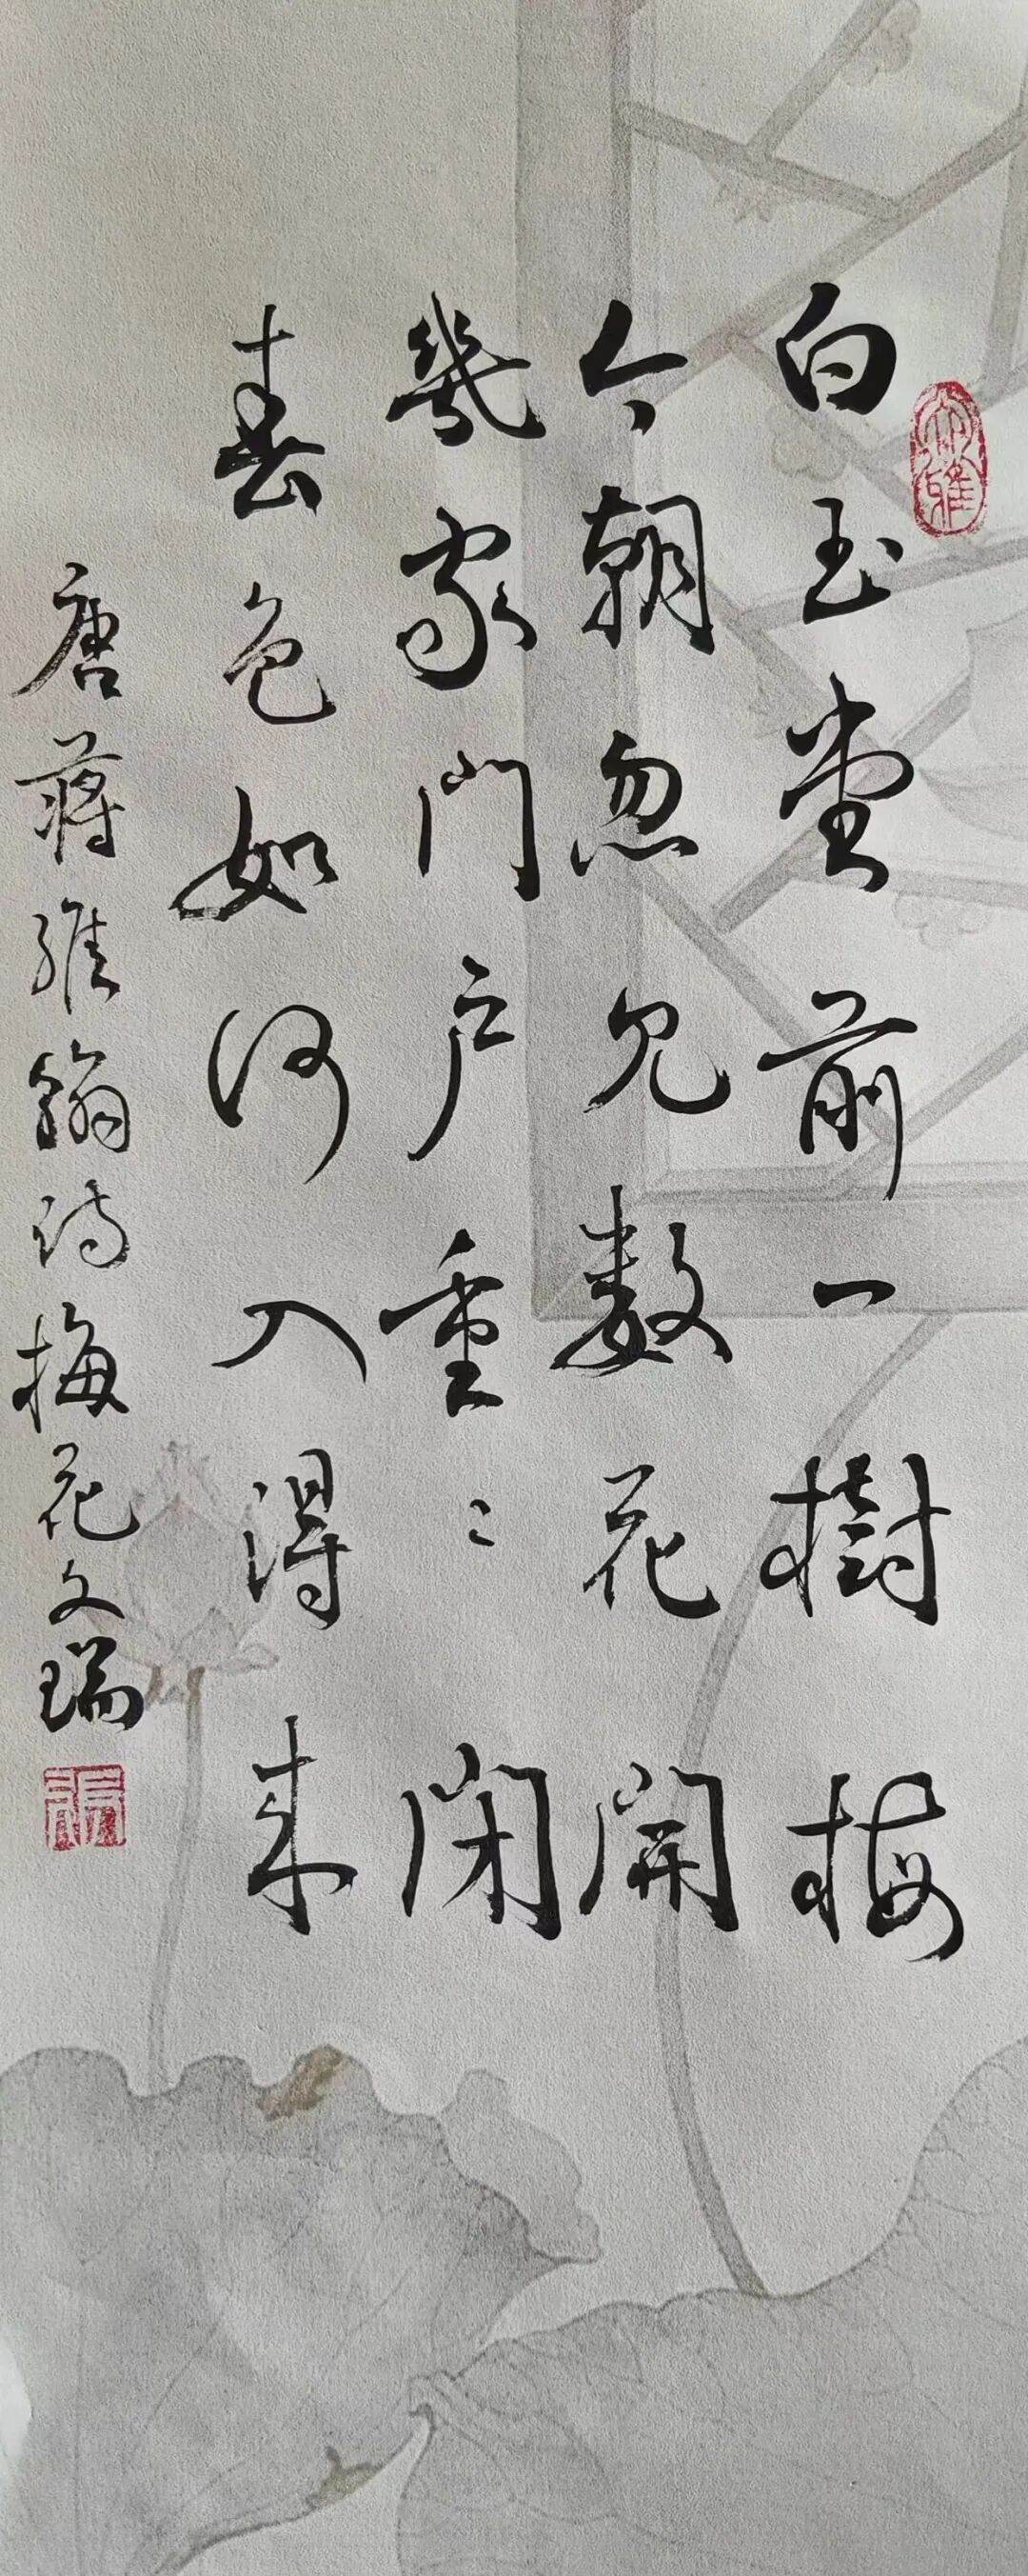 白玉堂前一樹梅
今朝忽見數花開
幾家門戶重重閉
春色如何入得來
唐蔣維翰詩梅花文瑞
大雅